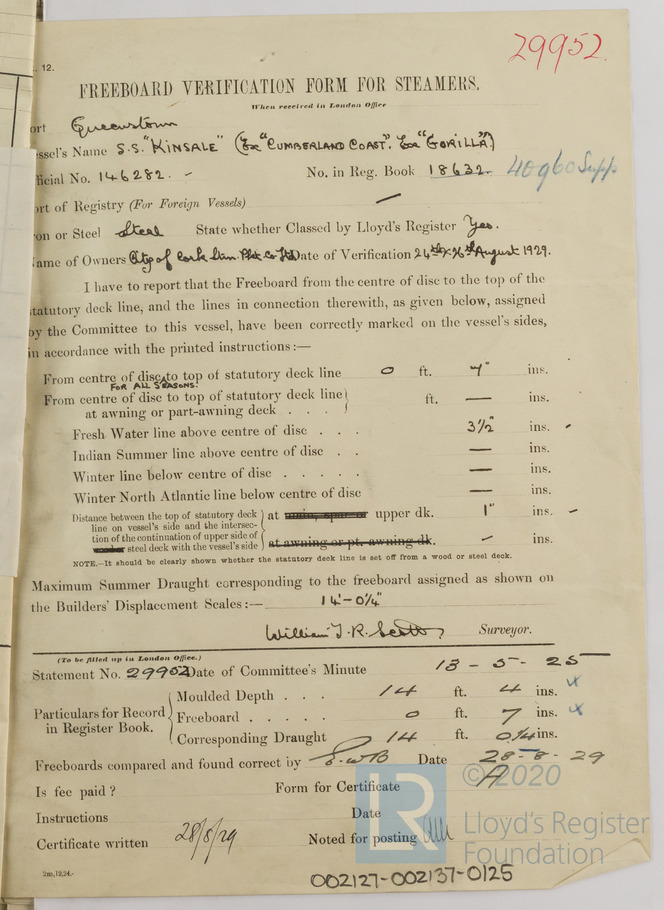 29952
. 12.
FREEBOARD VERIFICATION FORM FOR STEAMERS.
When received in London Office
ort Queenstown
essel's Name S.S. "KINSALE" (Ex "CUMBERLAND COAST". Ex "GORILLA")
ficial No. 146282. - No. in Reg. Book 18632. 40960 Supp
ort of Registry (For Foreign Vessels) —
on or Steel Steel State whether Classed by Lloyd's Register Yes.
ame of Owners City of Cork Stm. Pkt. Co Ltd Date of Verification 24th & 26th August 1929.
I have to report that the Freeboard from the centre of disc to the top of the
statutory deck line, and the lines in connection therewith, as given below, assigned
by the Committee to this vessel, have been correctly marked on the vessel's sides,
in accordance with the printed instructions:—
From centre of disc to top of statutory deck line 0 ft. 7" ins.
FOR ALL SEASONS.
From centre of disc to top of statutory deck line
at awning or part-awning deck . . . ft. — ins.
Fresh Water line above centre of disc . . . 3½" ins. -
Indian Summer line above centre of disc . . — ins.
Winter line below centre of disc . . . . . — ins.
Winter North Atlantic line below centre of disc — ins.
Distance between the top of statutory deck
line on vessel's side and the intersec-
tion of the continuation of upper side of
steel deck with the vessel's side
at main, spar or upper dk. 1" ins. -
at awning or pt. awning dk. - ins.
NOTE.—It should be clearly shown whether the statutory deck line is set off from a wood or steel deck.
Maximum Summer Draught corresponding to the freeboard assigned as shown on
the Builders' Displacement Scales:— 14'-0¼"
William T. R. Scott, Surveyor.
(To be filled up in London Office.)
Statement No. 29952 Date of Committee's Minute 13 - 5 - 25
Particulars for Record
in Register Book.
Moulded Depth . . . 14 ft. 4 ins. x
Freeboard . . . . . 0 ft. 7 ins. x
Corresponding Draught 14 ft. 0¼ ins.
Freeboards compared and found correct by Date 28-8-29
Is fee paid? Form for Certificate A
Instructions Date
Certificate written 28/8/29 Noted for posting
2m,12,24.-
LR
© 2020
Lloyd's Register
Foundation
002127-002137-0125